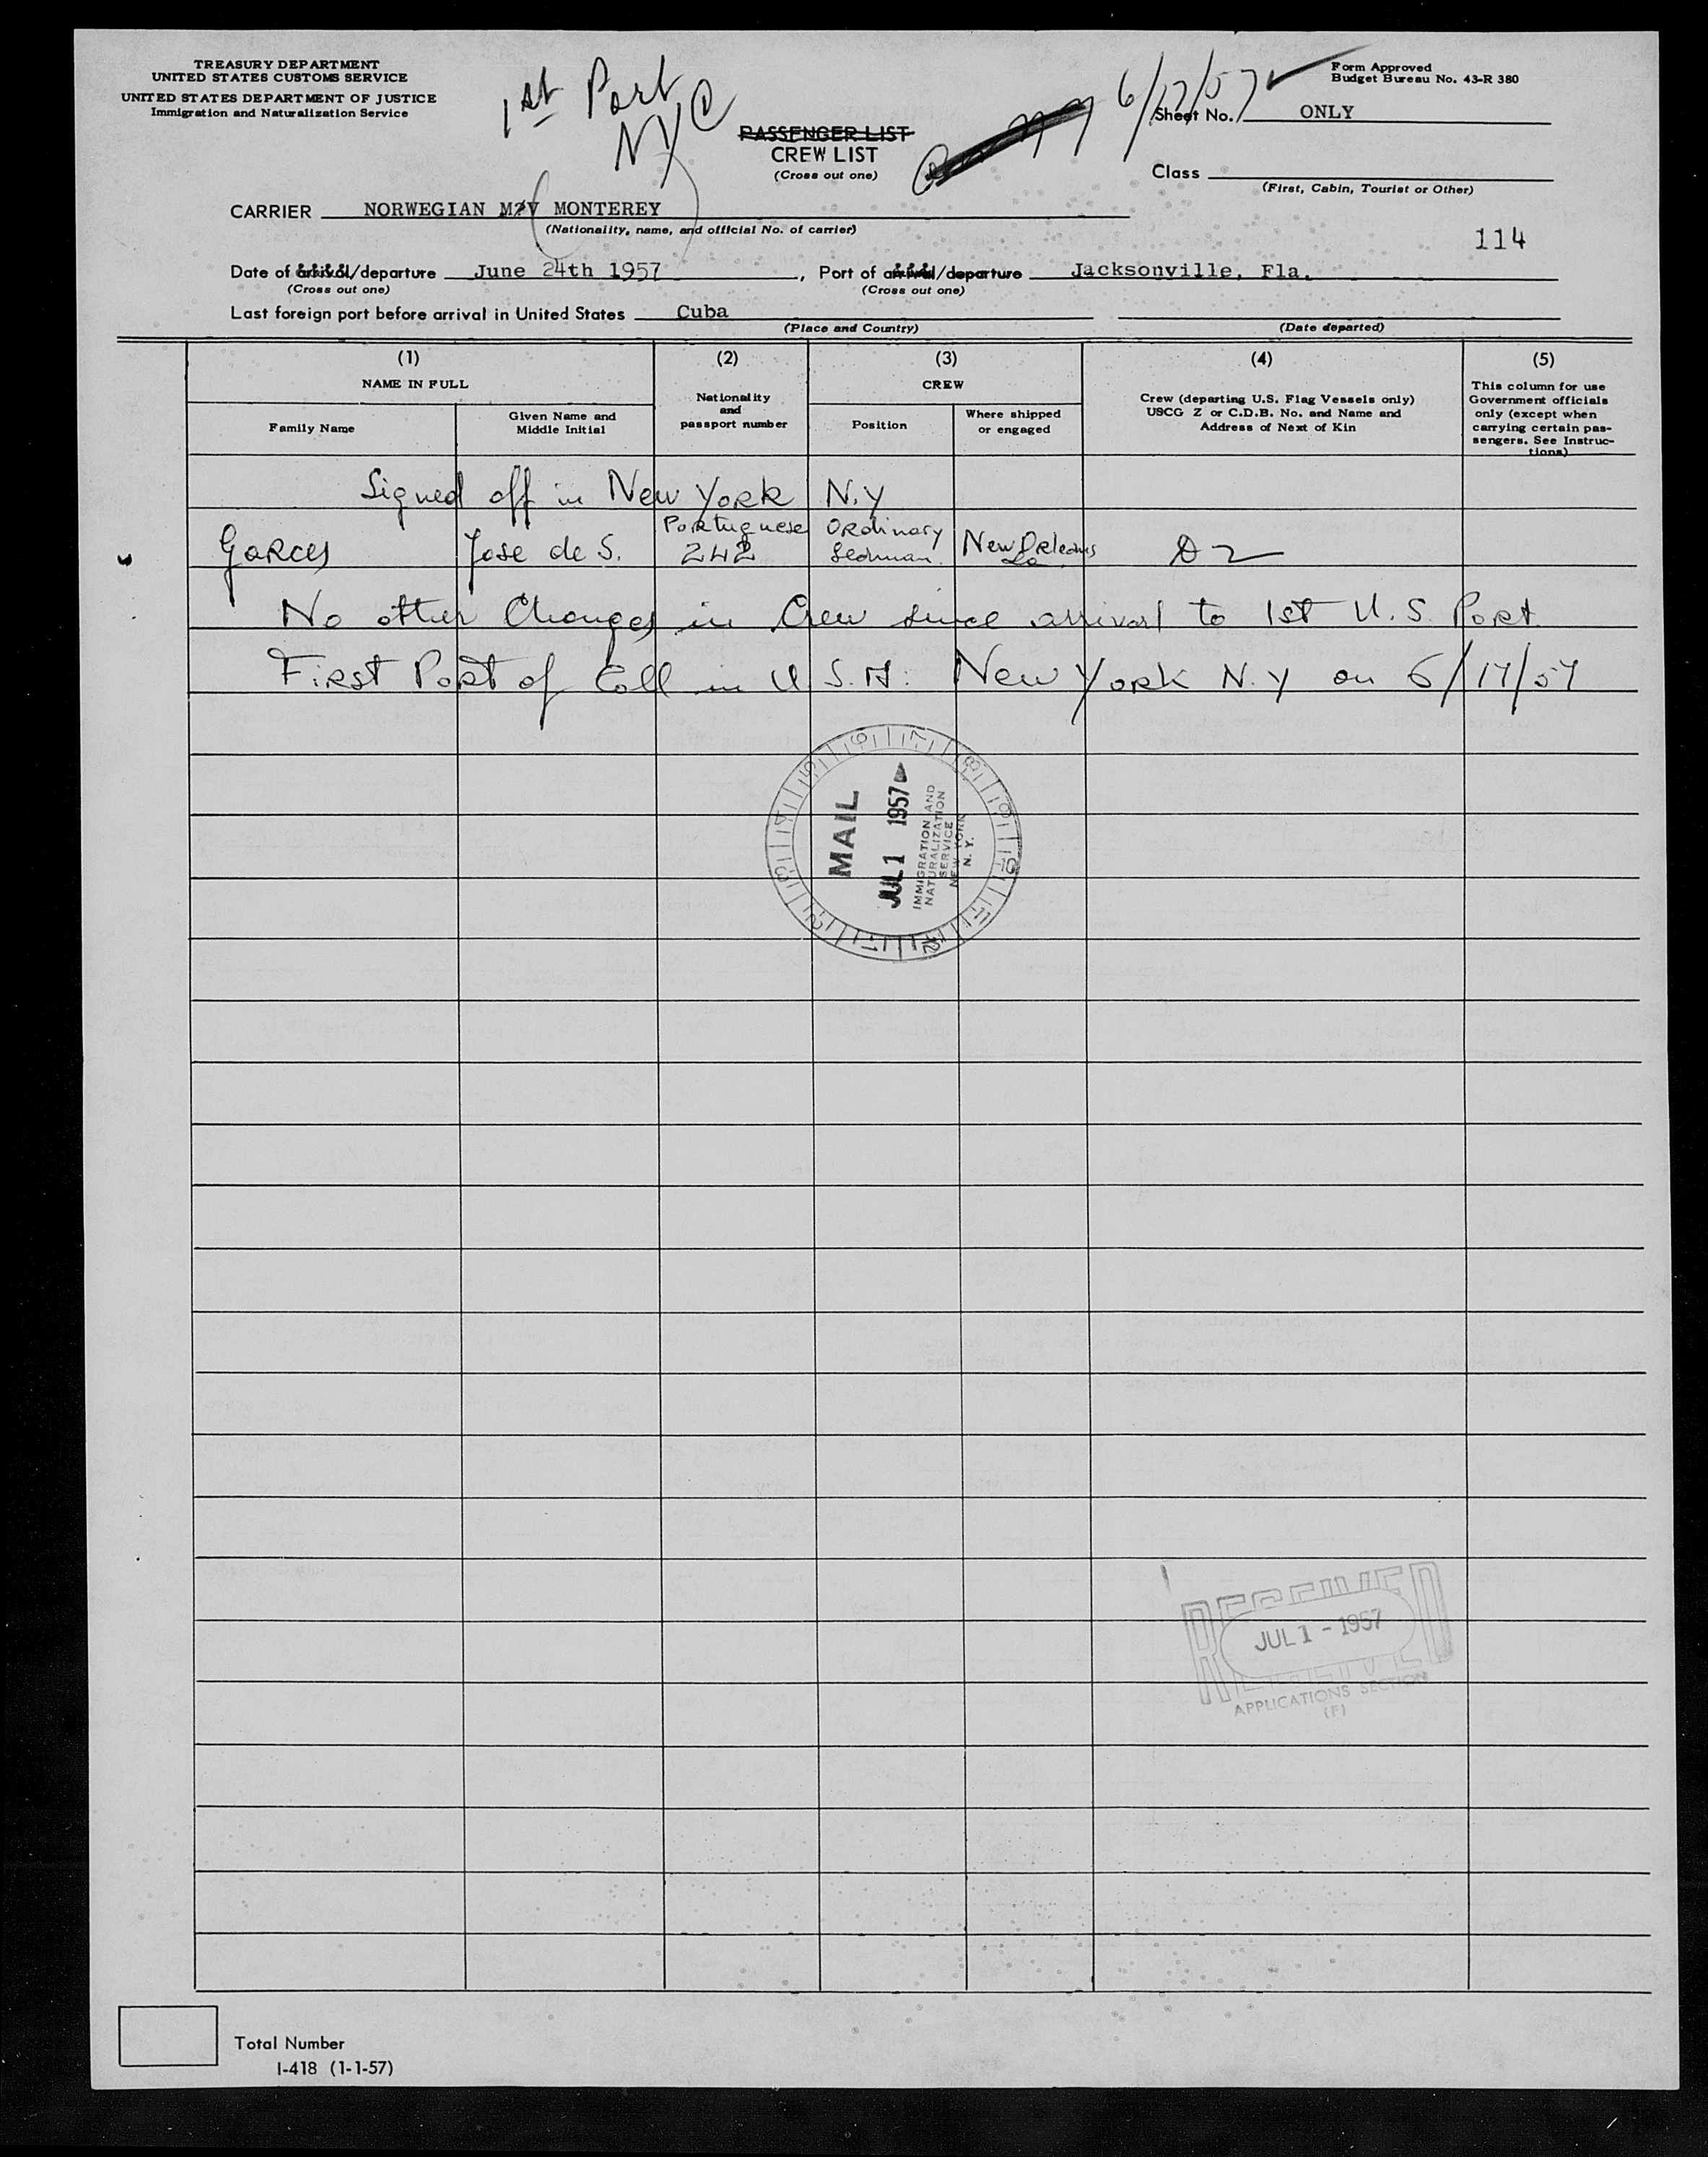 TREASURY DEPARTMENT
UNITED STATES CUSTOMS SERVICE
UNITED STATES DEPARTMENT OF JUSTICE
Immigration and Naturalization Service
1st Port
NYC
PASSENGER LIST
CREW LIST
(Cross out one)
6/17/57
Form Approved
Budget Bureau No. 43-R 380
Sheet No. ONLY
Class
(First, Cabin, Tourist or Other)
CARRIER NORWEGIAN M/V MONTEREY
(Nationality, name, and official No. of carrier)
114
Date of arrival/departure June 24th 1957, Port of arrival/departure Jacksonville, Fla.
(Cross out one) (Cross out one)
Last foreign port before arrival in United States Cuba
(Place and Country) (Date departed)
(1) (2) (3) (4) (5)
NAME IN FULL
Family Name
Given Name and
Middle Initial
Nationality
and
passport number
CREW
Position
Where shipped
or engaged
Crew (departing U.S. Flag Vessels only)
USCG Z or C.D.B. No. and Name and
Address of Next of Kin
This column for use
Government officials
only (except when
carrying certain pas-
sengers. See Instruc-
tions)
Signed off in New York N.Y
Garces Jose de S. Portuguese 242 Ordinary Seaman New Orleans La D2
No other Changes in Crew since arrival to 1st U.S. Port
First Port of Call in U.S.A: New York N.Y on 6/17/57
MAIL
JUL 1 1957
IMMIGRATION AND
NATURALIZATION
SERVICE
NEW YORK
N. Y.
RECEIVED
JUL 1 - 1957
APPLICATIONS SECTION
(F)
Total Number
I-418 (1-1-57)